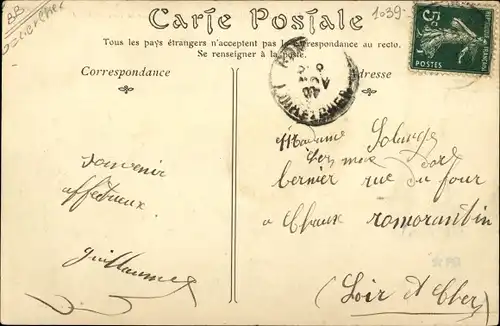 BB
1039-
Carte Postale
Tous les pays étrangers n'acceptent pas la correspondance au recto.
Se renseigner à la poste.
Correspondance
Adresse
5c
POSTES
LOIR-ET-CHER
souvenir
affectueux
guillaume
Madame Solange
bernier rue du four
a
romorantin
(Loir et Cher)